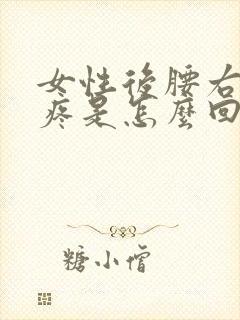 女性後腰右
疼是怎麼回
糖小僧